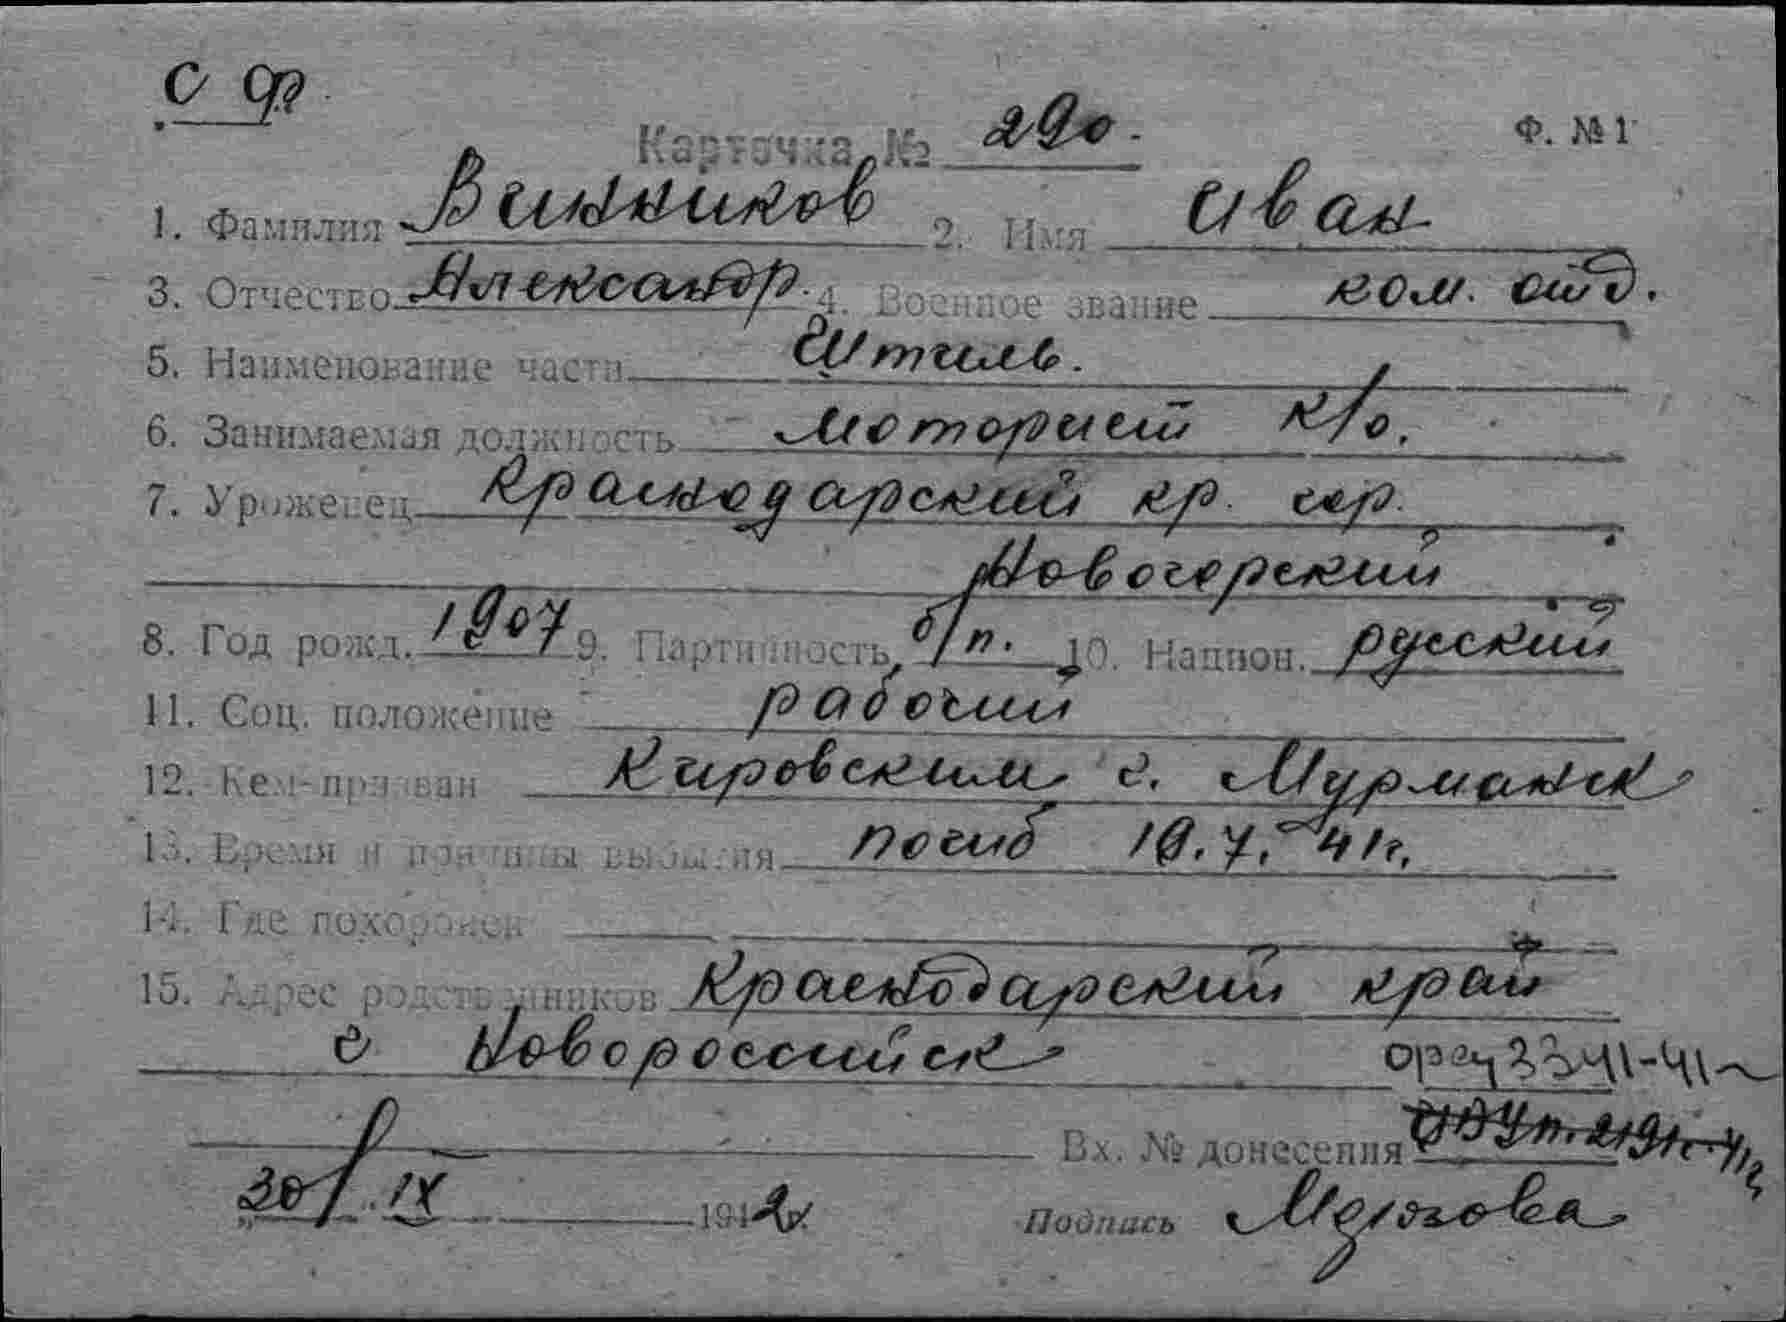 С Ф
Карточка № 290. Ф. № 1
1. Фамилия Винников 2. Имя Иван
3. Отчество Александр. 4. Военное звание ком. отд.
5. Наименование части Штиль.
6. Занимаемая должность моторист к/о.
7. Уроженец Краснодарский кр. гор.
Новогорский
8. Год рожд. 1907 9. Партийность б/п. 10. Национ. русский
11. Соц. положение рабочий
12. Кем призван Кировским г. Мурманск
13. Время и причины выбытия погиб 10.7.41г.
14. Где похоронен
15. Адрес родственников Краснодарский край
г Новороссийск 3341-41
Вх. № донесения
30/IX 1942г.
Подпись